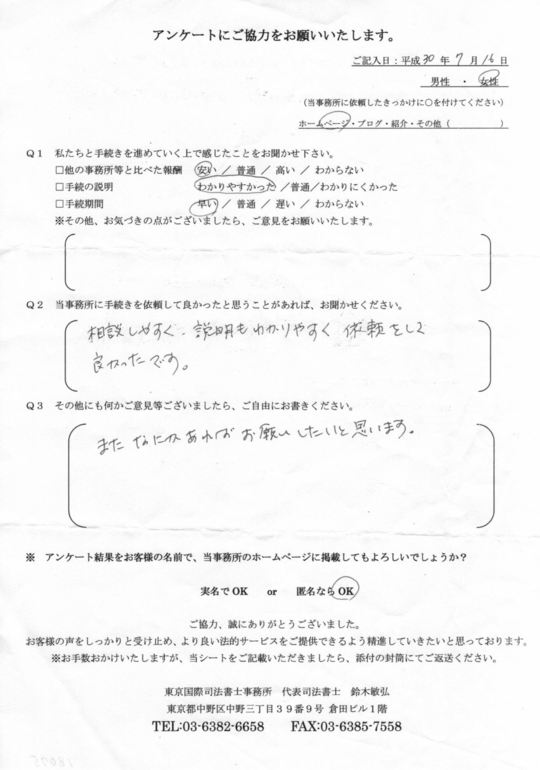 アンケートにご協力をお願いいたします。
ご記入日：平成30年7月16日
男性 ・ 女性
（当事務所に依頼したきっかけに○を付けてください）
ホームページ・ブログ・紹介・その他（　　　　　　）
Q1　私たちと手続きを進めていく上で感じたことをお聞かせ下さい。
□他の事務所等と比べた報酬　安い ／ 普通 ／ 高い ／ わからない
□手続の説明　わかりやすかった ／普通／わかりにくかった
□手続期間　早い ／ 普通 ／ 遅い ／ わからない
※その他、お気づきの点がございましたら、ご意見をお願いいたします。
Q2　当事務所に手続きを依頼して良かったと思うことがあれば、お聞かせください。
相談しやすく、説明もわかりやすく 依頼をして
良かったです。
Q3　その他にも何かご意見等ございましたら、ご自由にお書きください。
また なにかあれば お願いしたいと思います。
※　アンケート結果をお客様の名前で、当事務所のホームページに掲載してもよろしいでしょうか？
実名でOK　or　匿名ならOK
ご協力、誠にありがとうございました。
お客様の声をしっかりと受け止め、より良い法的サービスをご提供できるよう精進していきたいと思っております。
※お手数おかけいたしますが、当シートをご記載いただきましたら、添付の封筒にてご返送ください。
東京国際司法書士事務所　代表司法書士　鈴木敏弘
東京都中野区中野三丁目３９番９号 倉田ビル１階
TEL:03-6382-6658　FAX:03-6385-7558